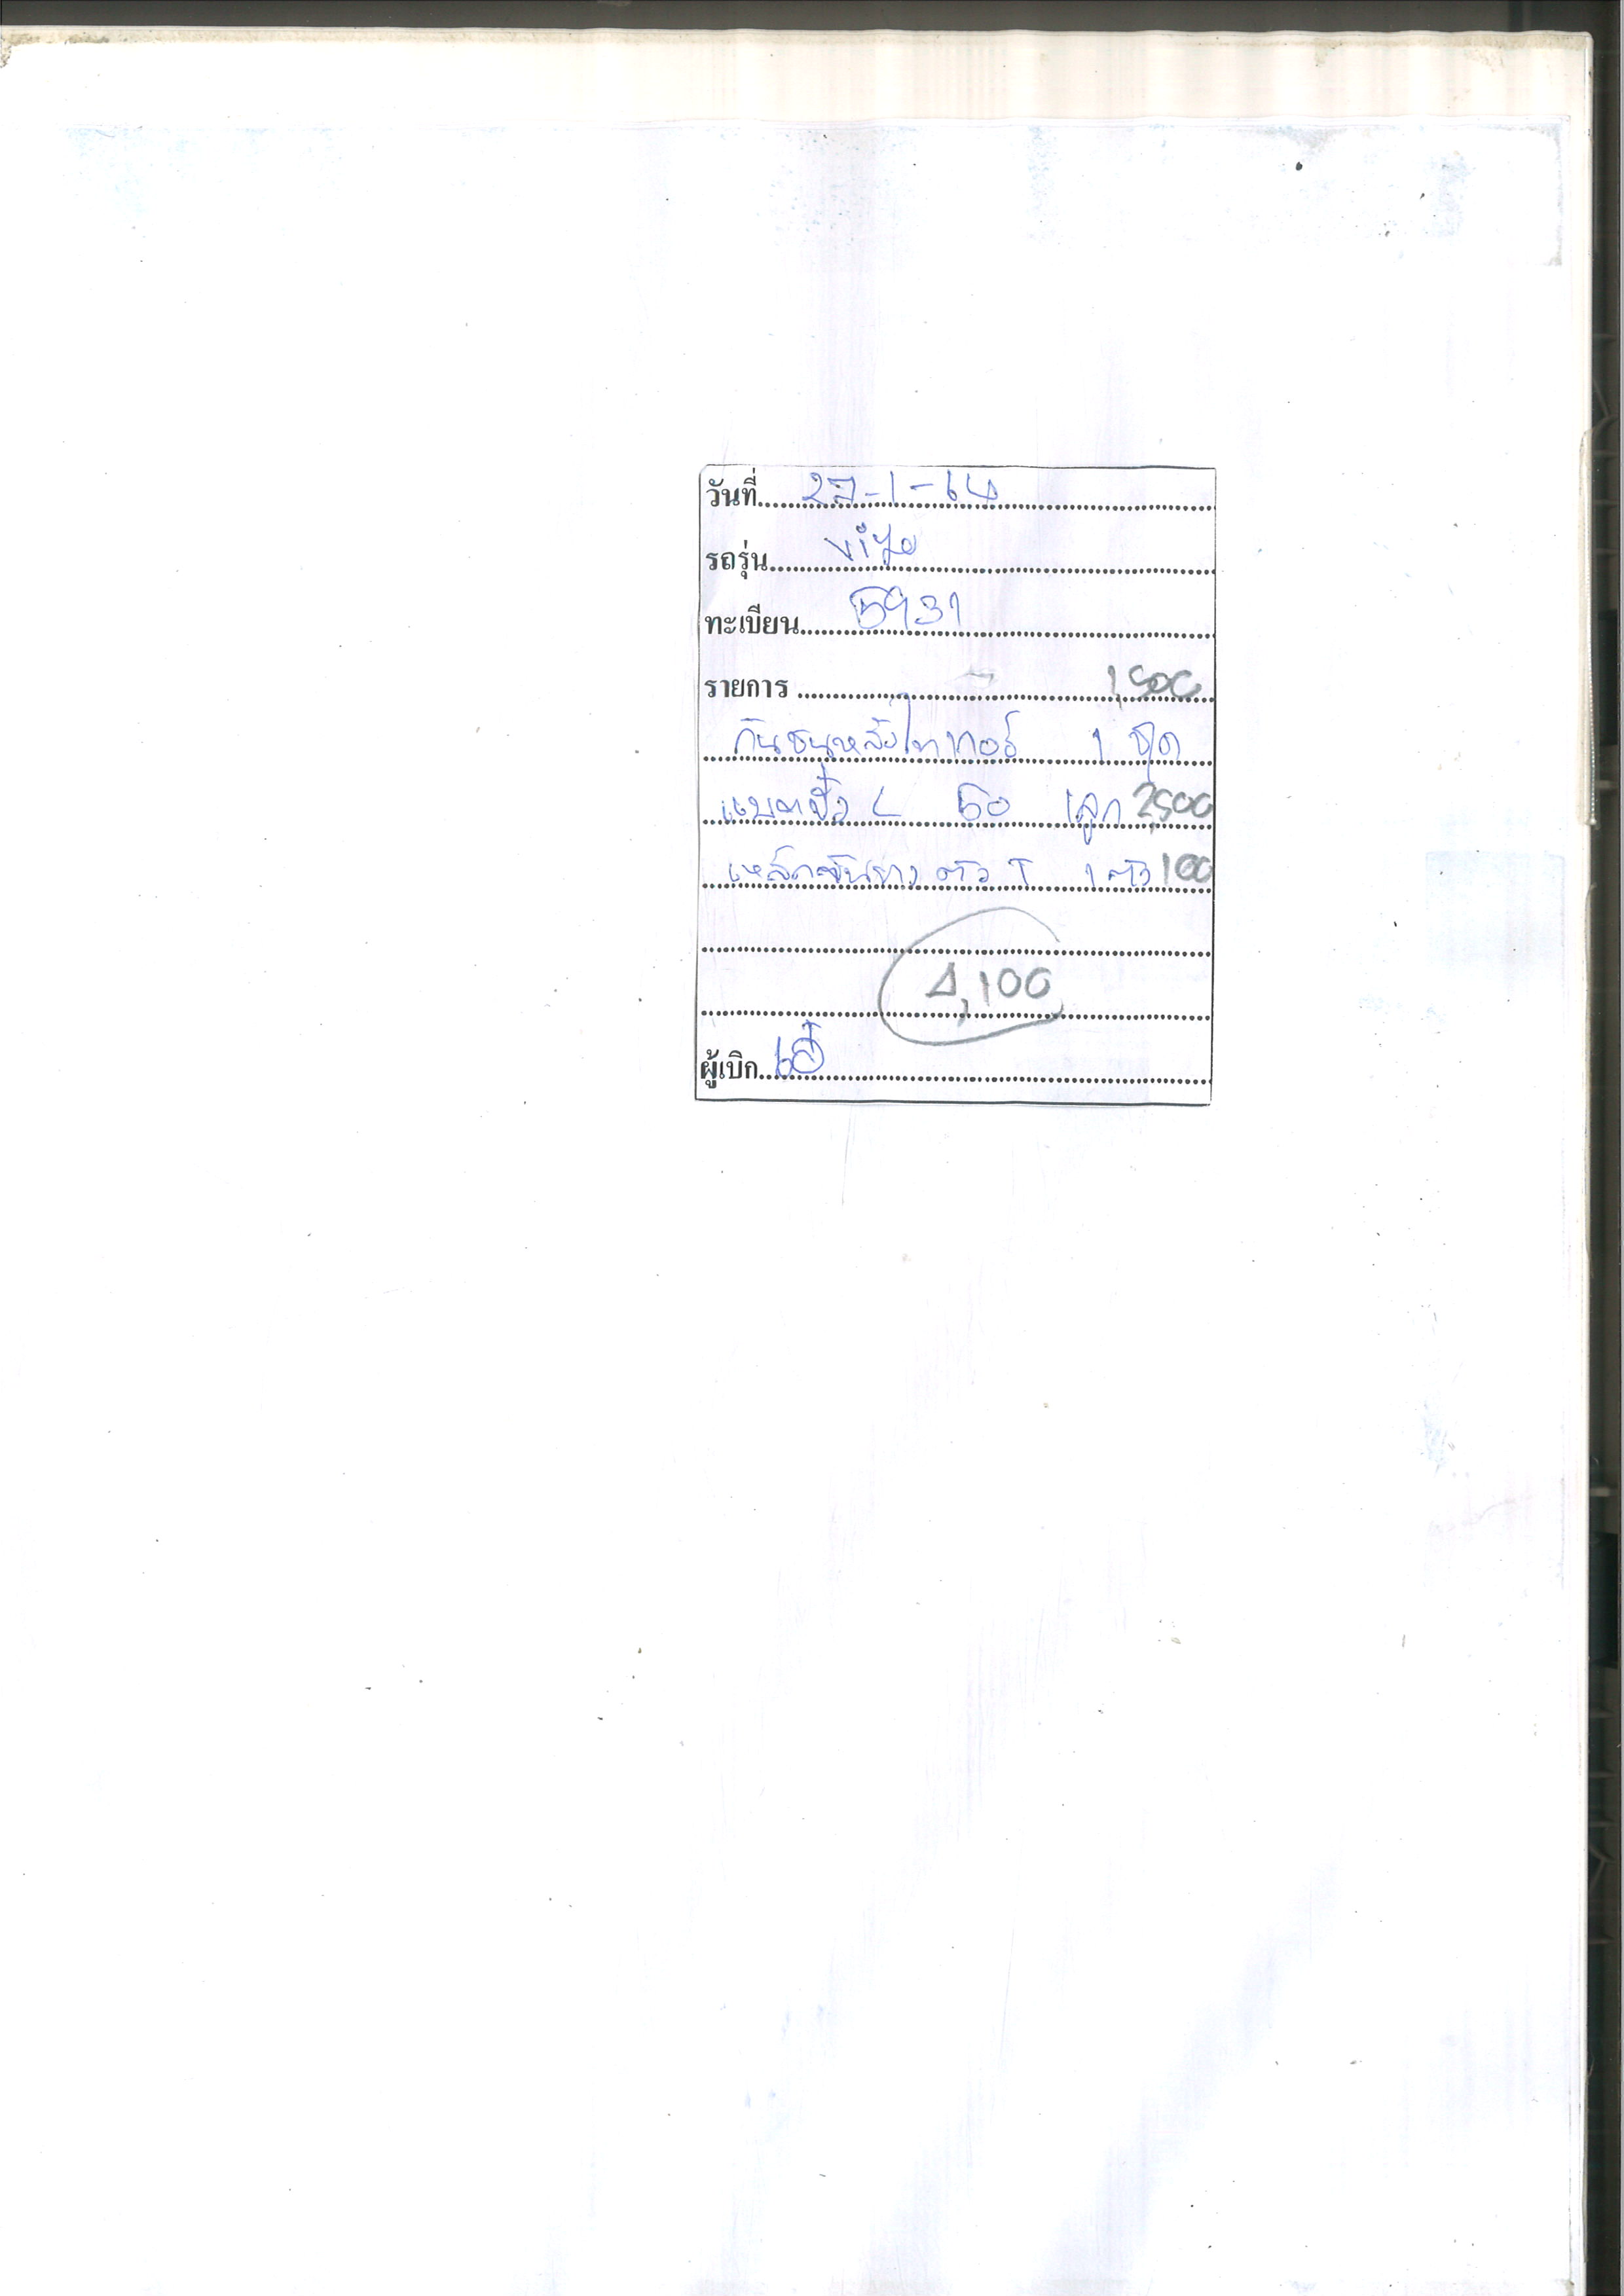 วันที่ 27-1-64
รถรุ่น vigo
ทะเบียน 5931
รายการ 1,500
กันชนหลังไทเกอร์ 1 ชุด
แบตเตอรี่ L 50 1ลูก 2,500
เหล็กขันยาง ตัว T 1 ตัว 100
4,100
ผู้เบิก